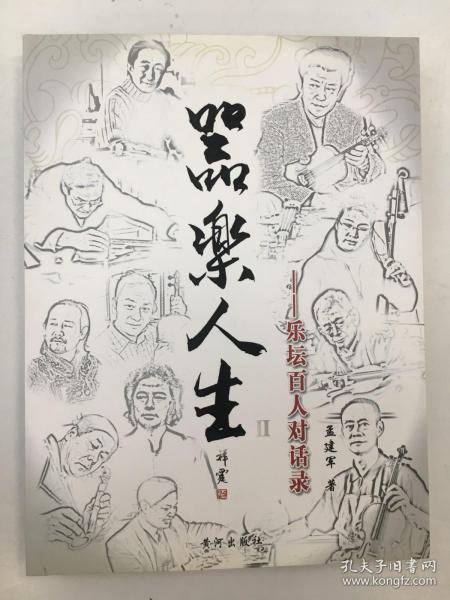 器樂人生
II
——乐坛百人对话录
祥霆
孟建军 著
黄河出版社
孔夫子旧书网
www.kongfz.com